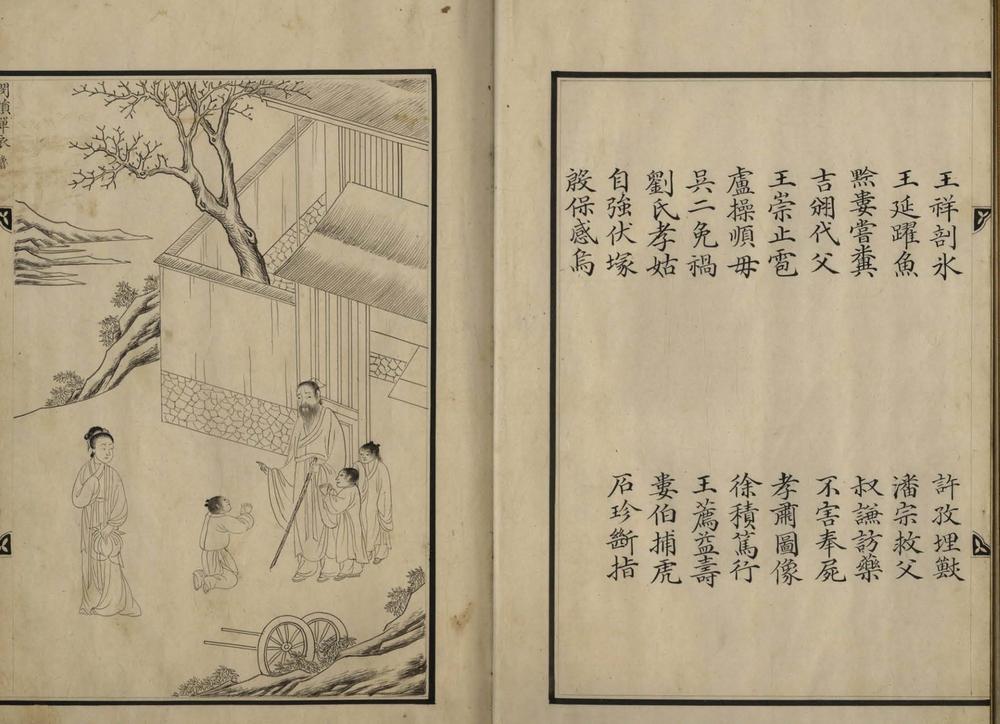 王祥剖氷 許孜埋獸
王延躍魚 潘宗救父
黔婁嘗糞 叔謙訪藥
吉翂代父 不害奉屍
王崇止雹 孝肅圖像
盧操順母 徐積篤行
吳二免禍 王薦益壽
劉氏孝姑 婁伯捕虎
自強伏塚 石珍斷指
殷保感烏
閔損單衣 魯